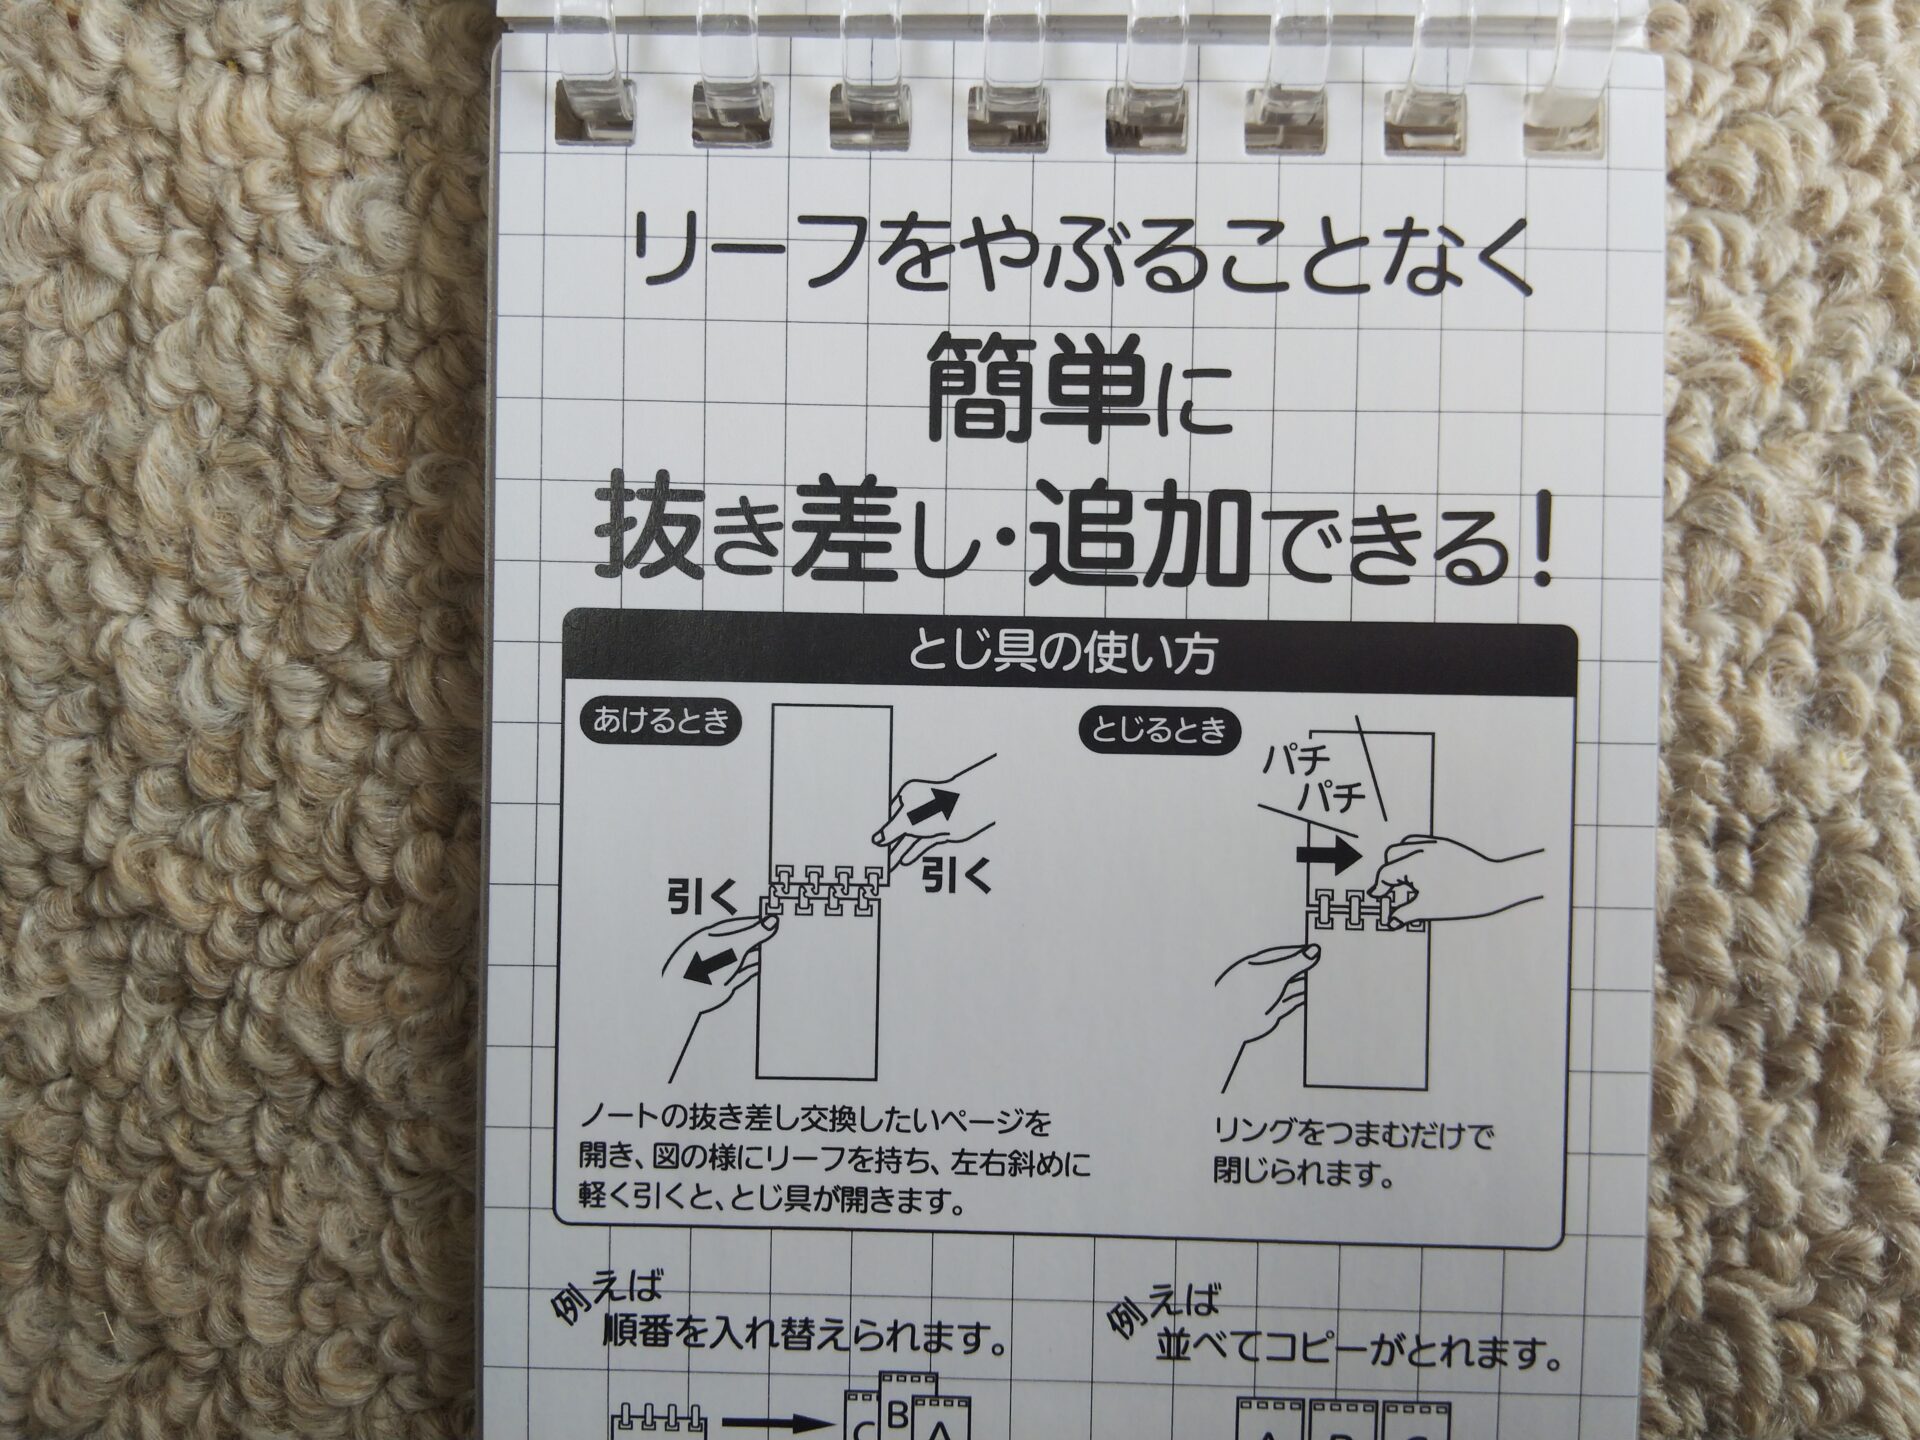 リーフをやぶることなく
簡単に
抜き差し・追加できる!
とじ具の使い方
あけるとき
引く
引く
ノートの抜き差し交換したいページを
開き、図の様にリーフを持ち、左右斜めに
軽く引くと、とじ具が開きます。
とじるとき
パチ
パチ
リングをつまむだけで
閉じられます。
例えば
順番を入れ替えられます。
C B A
例えば
並べてコピーがとれます。
A B C